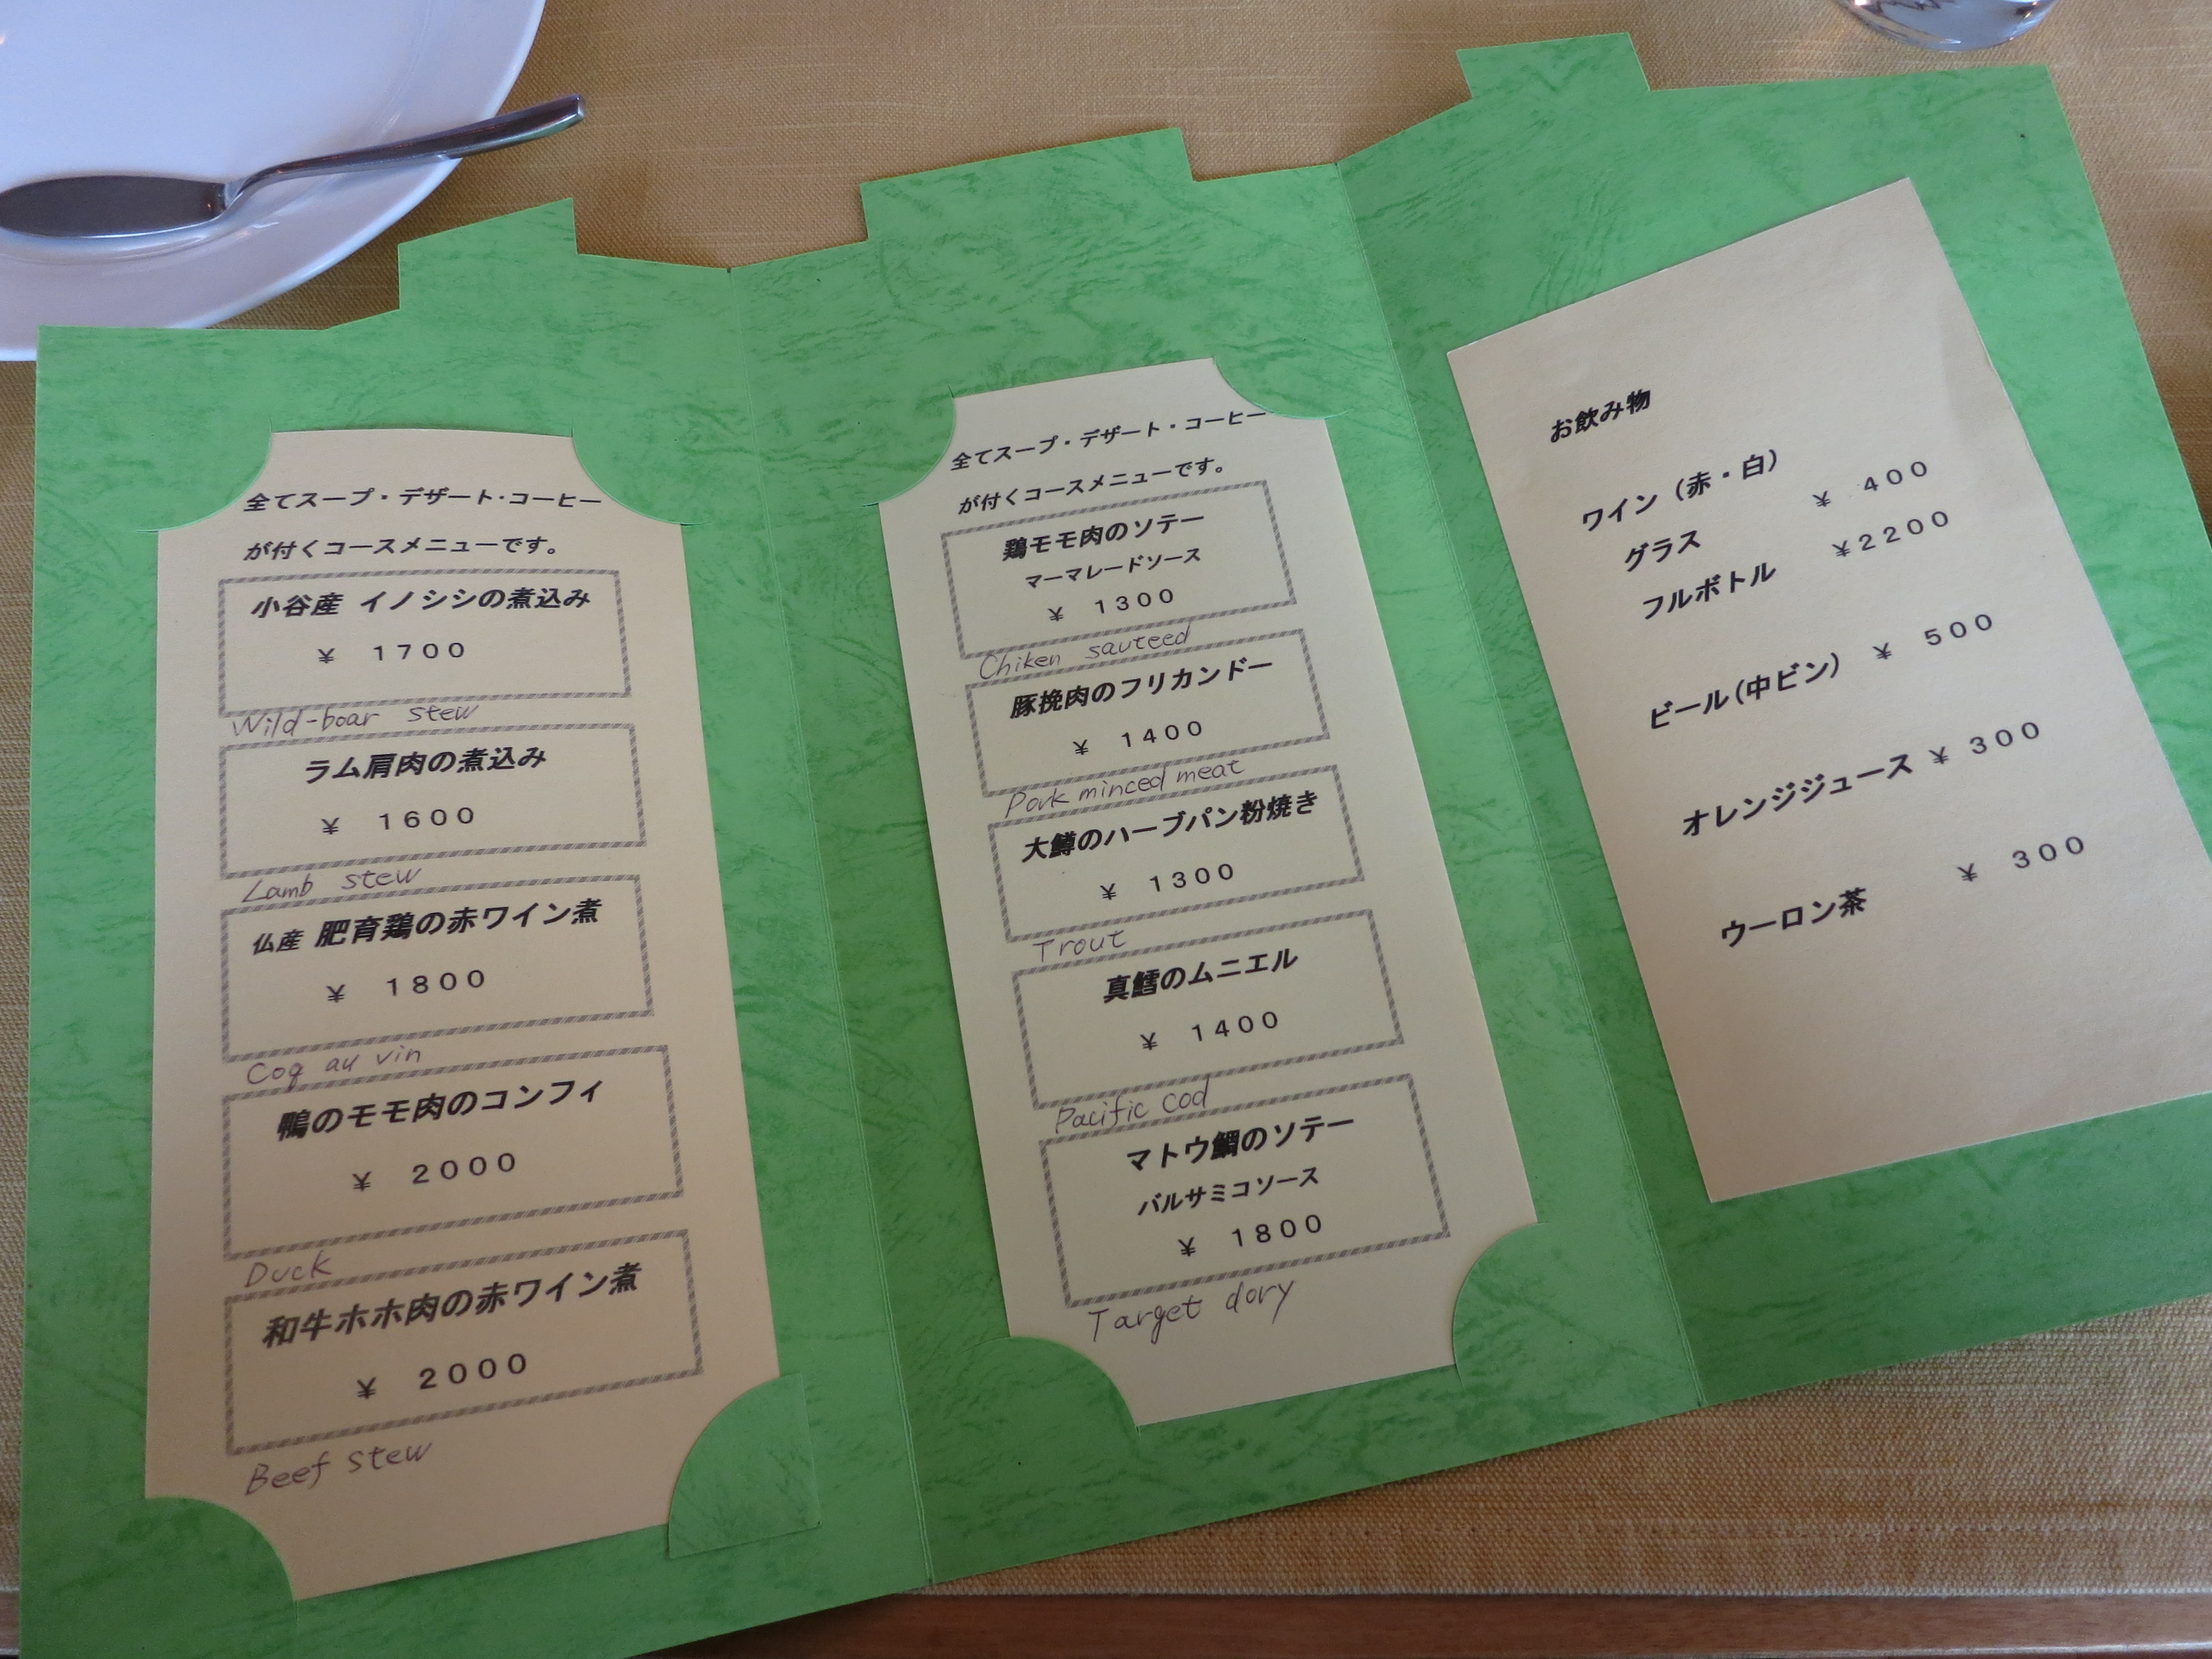 全てスープ・デザート・コーヒー
が付くコースメニューです。
小谷産 イノシシの煮込み
¥ 1700
Wild-boar stew
ラム肩肉の煮込み
¥ 1600
Lamb stew
仏産 肥育鶏の赤ワイン煮
¥ 1800
Coq au vin
鴨のモモ肉のコンフィ
¥ 2000
Duck
和牛ホホ肉の赤ワイン煮
¥ 2000
Beef stew
全てスープ・デザート・コーヒー
が付くコースメニューです。
鶏モモ肉のソテー
マーマレードソース
¥ 1300
Chiken sauteed
豚挽肉のフリカンドー
¥ 1400
Pork minced meat
大鱒のハーブパン粉焼き
¥ 1300
Trout
真鱈のムニエル
¥ 1400
Pacific cod
マトウ鯛のソテー
バルサミコソース
¥ 1800
Target dory
お飲み物
ワイン（赤・白）
グラス ¥ 400
フルボトル ¥2200
ビール（中ビン） ¥ 500
オレンジジュース ¥ 300
ウーロン茶 ¥ 300